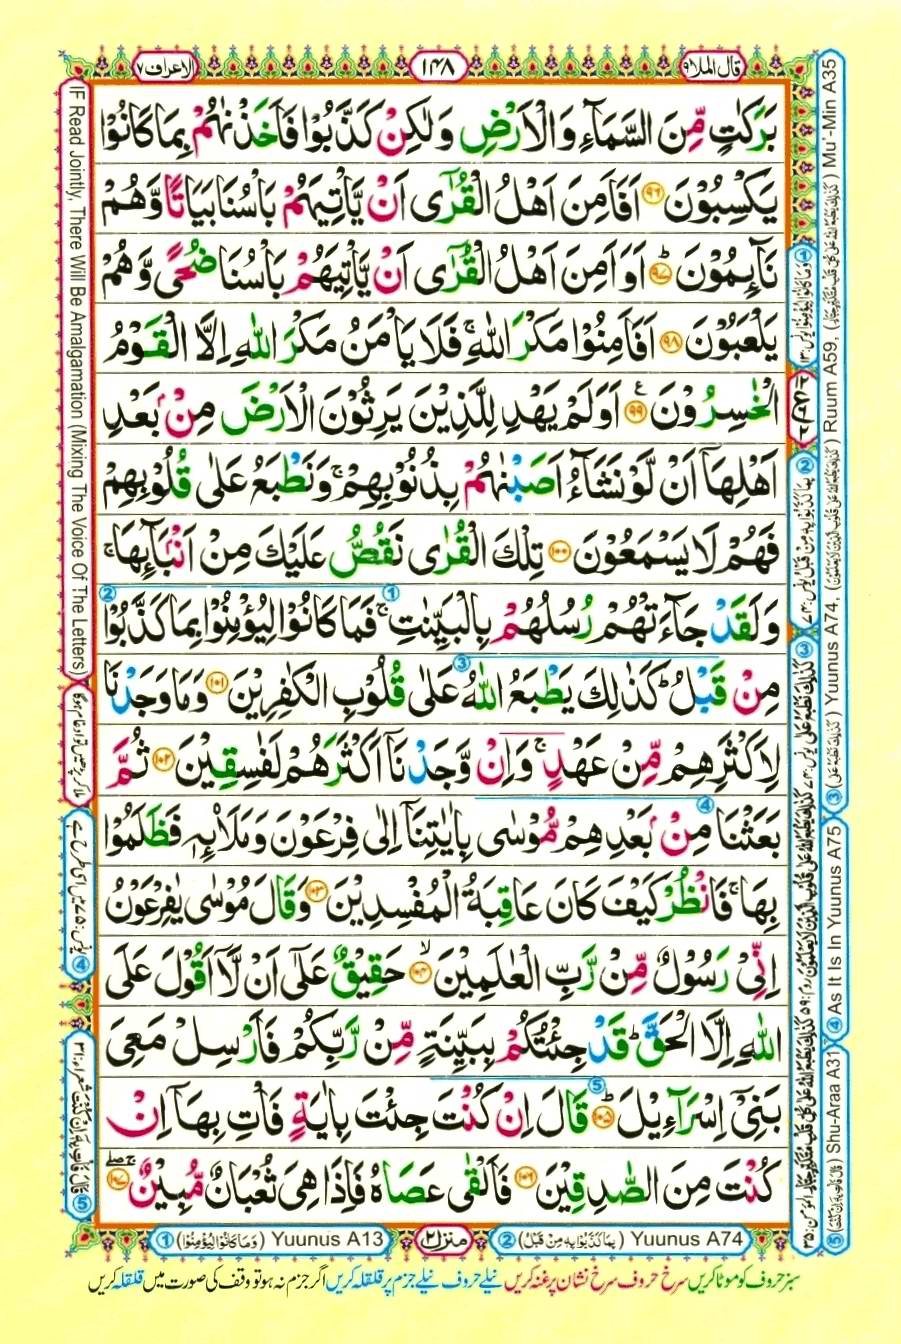 قال الملا ٩
١٤٨
الاعراف ٧
بَرَكٰتٍ مِّنَ السَّمَآءِ وَالْاَرْضِ وَلٰكِنْ كَذَّبُوْا فَاَخَذْنٰهُمْ بِمَا كَانُوْا
يَكْسِبُوْنَ ﴿٩٦﴾ اَفَاَمِنَ اَهْلُ الْقُرٰٓى اَنْ يَّاْتِيَهُمْ بَاْسُنَا بَيَاتًا وَّهُمْ
نَآئِمُوْنَ ؕ﴿٩٧﴾ اَوَاَمِنَ اَهْلُ الْقُرٰٓى اَنْ يَّاْتِيَهُمْ بَاْسُنَا ضُحًى وَّهُمْ
يَلْعَبُوْنَ ﴿٩٨﴾ اَفَاَمِنُوْا مَكْرَ اللّٰهِ ۚ فَلَا يَاْمَنُ مَكْرَ اللّٰهِ اِلَّا الْقَوْمُ
الْخٰسِرُوْنَ ﴿٩٩﴾ اَوَلَمْ يَهْدِ لِلَّذِيْنَ يَرِثُوْنَ الْاَرْضَ مِنْۢ بَعْدِ
اَهْلِهَاۤ اَنْ لَّوْ نَشَآءُ اَصَبْنٰهُمْ بِذُنُوْبِهِمْ ۚ وَنَطْبَعُ عَلٰى قُلُوْبِهِمْ
فَهُمْ لَا يَسْمَعُوْنَ ﴿١٠٠﴾ تِلْكَ الْقُرٰى نَقُصُّ عَلَيْكَ مِنْ اَنْۢبَآئِهَا ۚ
وَلَقَدْ جَآءَتْهُمْ رُسُلُهُمْ بِالْبَيِّنٰتِ ۚ فَمَا كَانُوْا لِيُؤْمِنُوْا بِمَا كَذَّبُوْا
مِنْ قَبْلُ ؕ كَذٰلِكَ يَطْبَعُ اللّٰهُ عَلٰى قُلُوْبِ الْكٰفِرِيْنَ ﴿١٠١﴾ وَمَا وَجَدْنَا
لِاَكْثَرِهِمْ مِّنْ عَهْدٍ ۚ وَاِنْ وَّجَدْنَاۤ اَكْثَرَهُمْ لَفٰسِقِيْنَ ﴿١٠٢﴾ ثُمَّ
بَعَثْنَا مِنْۢ بَعْدِهِمْ مُّوْسٰى بِاٰيٰتِنَاۤ اِلٰى فِرْعَوْنَ وَمَلَا۟ئِهٖ فَظَلَمُوْا
بِهَا ۚ فَانْظُرْ كَيْفَ كَانَ عَاقِبَةُ الْمُفْسِدِيْنَ ﴿١٠٣﴾ وَقَالَ مُوْسٰى يٰفِرْعَوْنُ
اِنِّىْ رَسُوْلٌ مِّنْ رَّبِّ الْعٰلَمِيْنَ ۙ﴿١٠٤﴾ حَقِيْقٌ عَلٰٓى اَنْ لَّاۤ اَقُوْلَ عَلَى
اللّٰهِ اِلَّا الْحَقَّ ؕ قَدْ جِئْتُكُمْ بِبَيِّنَةٍ مِّنْ رَّبِّكُمْ فَاَرْسِلْ مَعِىَ
بَنِىْۤ اِسْرَآءِيْلَ ؕ﴿١٠٥﴾ قَالَ اِنْ كُنْتَ جِئْتَ بِاٰيَةٍ فَاْتِ بِهَاۤ اِنْ
كُنْتَ مِنَ الصّٰدِقِيْنَ ﴿١٠٦﴾ فَاَلْقٰى عَصَاهُ فَاِذَا هِىَ ثُعْبَانٌ مُّبِيْنٌ ﴿١٠٧﴾
① (وَمَا كَانُوْا لِيُؤْمِنُوْا) Yuunus A13
منزل ٢
② (بِمَا كَذَّبُوْا بِهٖ مِنْ قَبْلُ) Yuunus A74
سبز حروف کو موٹا کریں سرخ حروف سرخ نشان پر غنہ کریں نیلے حروف نیلے جزم پر قلقلہ کریں اگر جزم نہ ہو تو وقف کی صورت میں قلقلہ کریں
IF Read Jointly, There Will Be Amalgamation (Mixing The Voice Of The Letters)
ملا کر پڑھیں تو ادغام ہوگا
③ (كَذٰلِكَ نَطْبَعُ عَلٰى) Yuunus A74, Ruum A59, Mu'-Min A35
④ As It Is In Yuunus A75
⑤ (قَالَ فَاْتِ بِهٖۤ اِنْ كُنْتَ) Shu-Araa A31